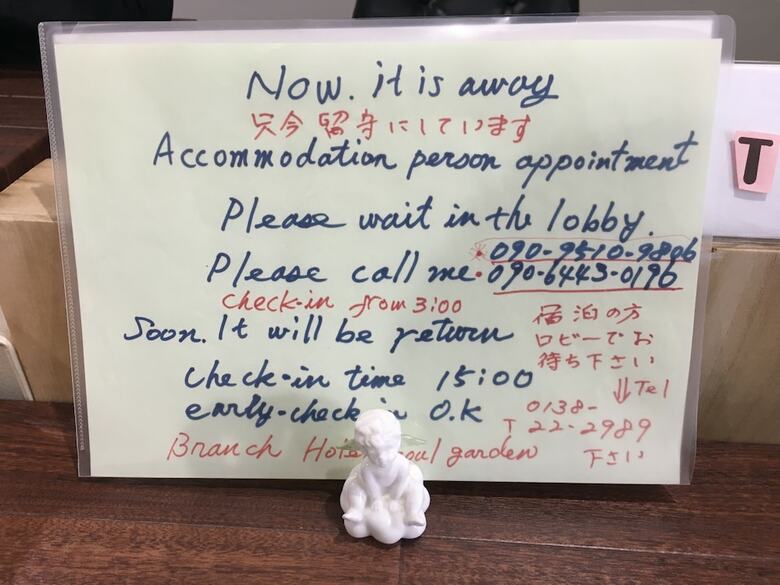 Now. it is away
只今留守にしています
Accommodation person appointment
Please wait in the lobby.
※090-9510-9896
Please call me・090-6443-0196
check-in from 3:00
Soon. It will be return
宿泊の方
ロビーでお
待ち下さい
check-in time 15:00
⇓Tel
early-check in O.K
0138-
22-2989
下さい
Branch Hotel garden
T